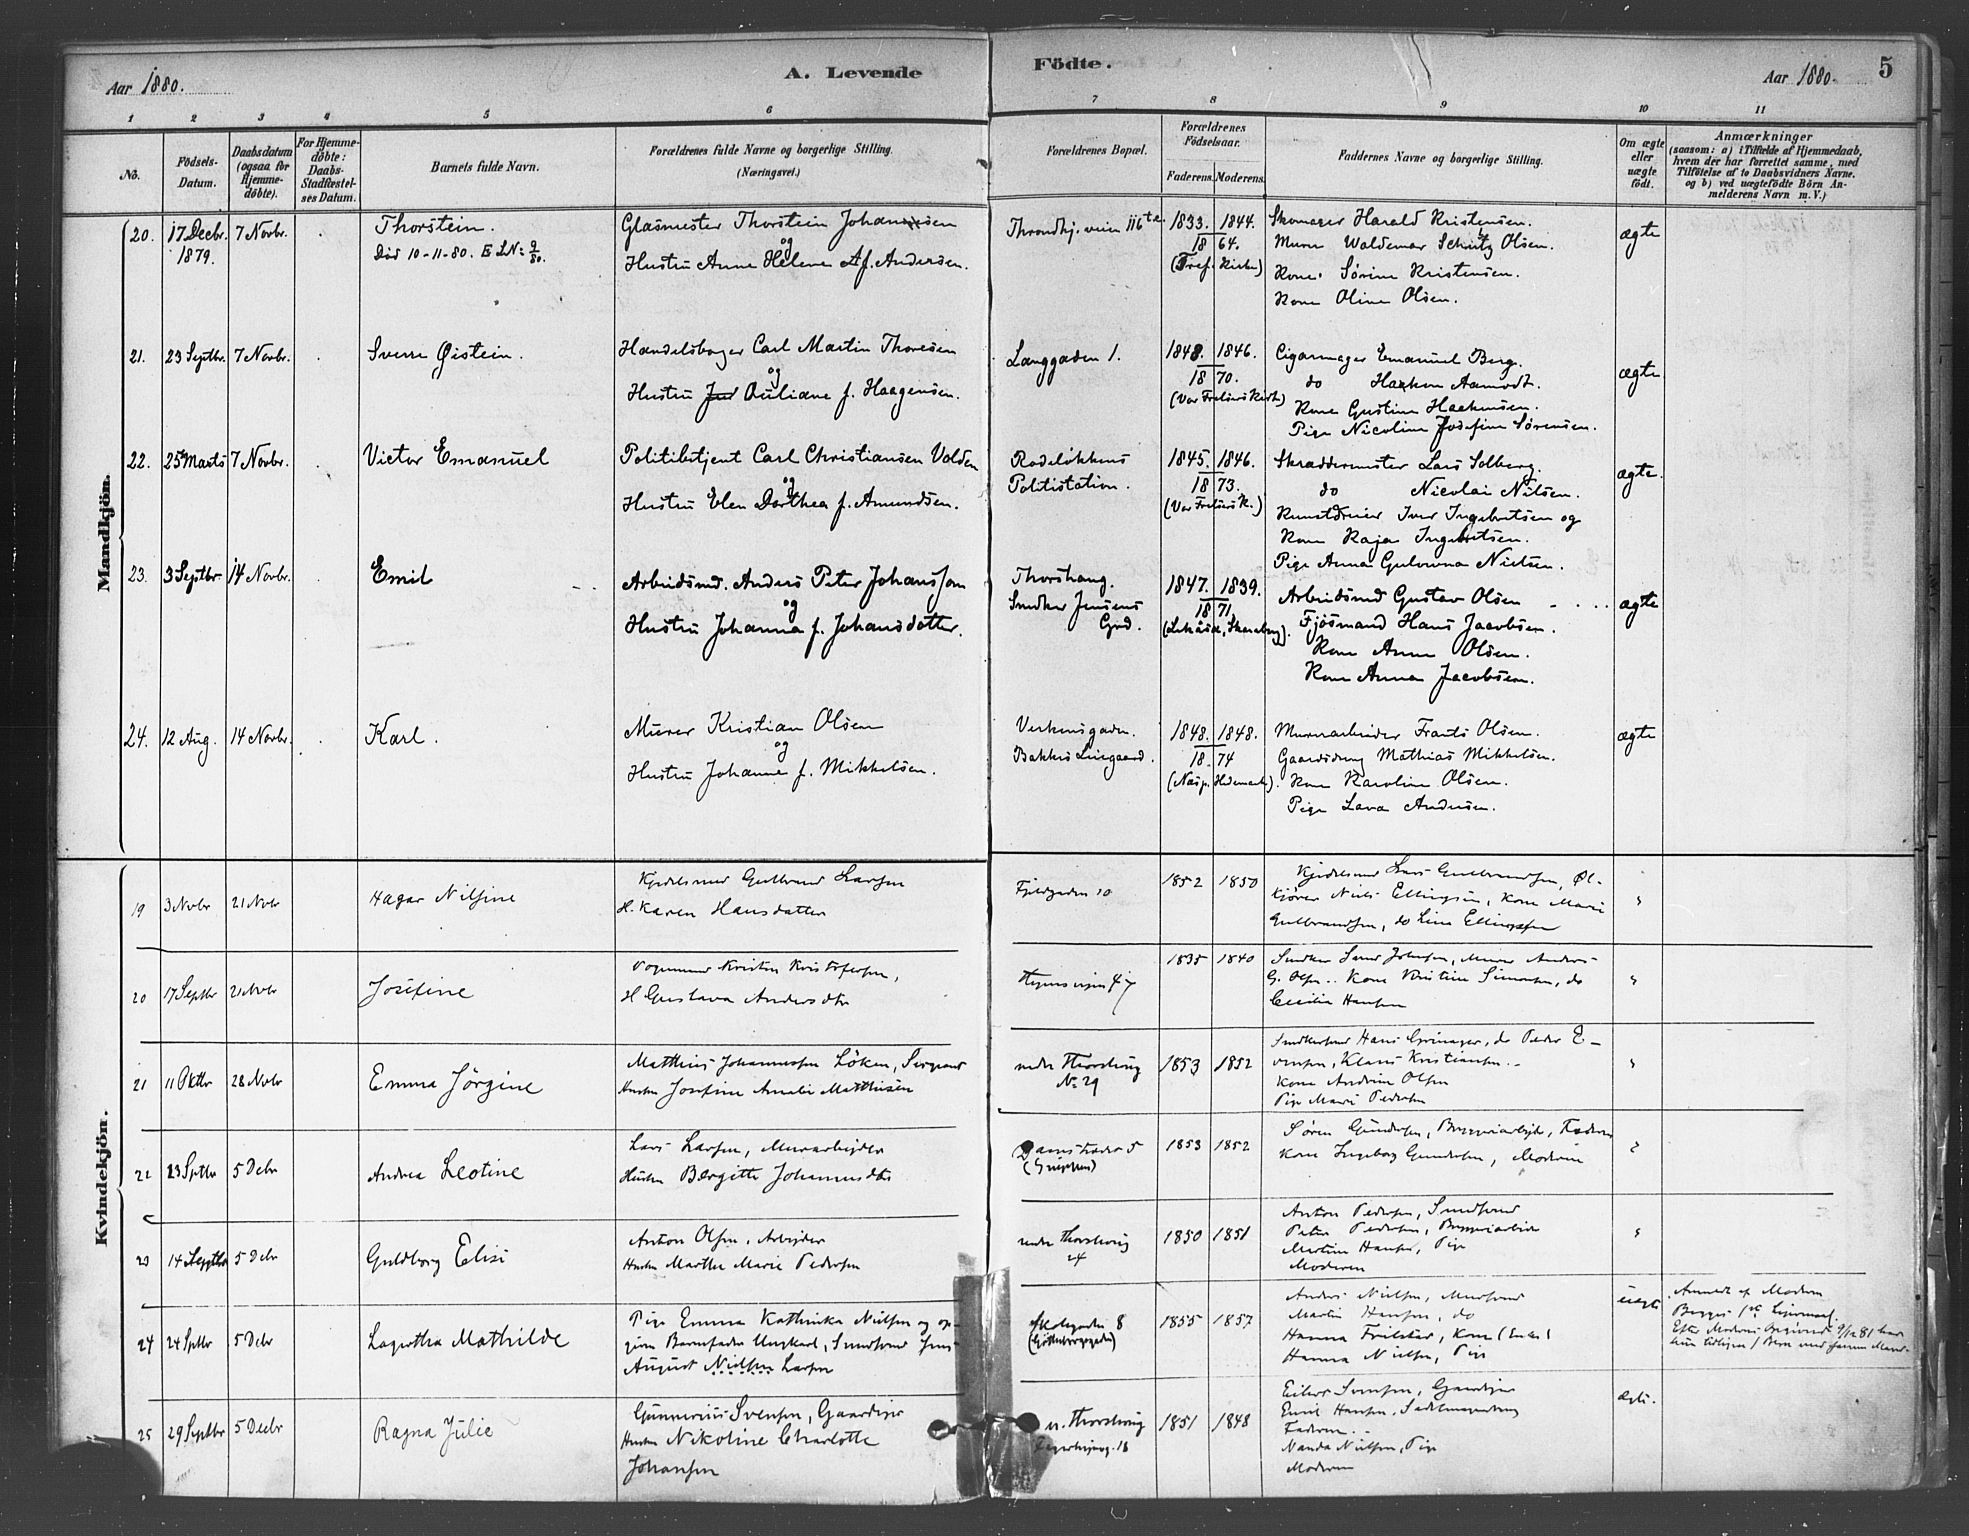 Aar 1880.
A. Levende
Födte.
Aar 1880.
5
1 2 3 4 5 6 7 8 9 10 11
No.
Födsels-Datum.
Daabsdatum (ogsaa for Hjemmedöbte).
For Hjemmedöbte: Daabs-Stadfæstelses Datum.
Barnets fulde Navn.
Forældrenes fulde Navne og borgerlige Stilling. (Næringsvei.)
Forældrenes Bopæl.
Forældrenes Födselsaar.
Faderens. Moderens.
Faddernes Navne og borgerlige Stilling.
Om ægte eller uægte födt.
Anmærkninger
(saasom: a) i Tilfælde af Hjemmedaab, hvem der har forrettet samme, med Tilföielse af to Daabsvidners Navne. og b) ved uægtefödte Börn Anmelderens Navn m. V.)
Mandkjön.
20. 17 Decbr. 1879. 7 Novbr.
Thorstein.
Död 10-11-80. E LN: 9/80.
Glasmester Thorstein Johannesen
og
Hustru Anne Helene Af. Andersen.
Throndhj. veien 116
1833. 1844.
1864.
(Tref. Kirke)
Skomager Harald Kristensen.
Murer Waldemar Schütz Olsen.
Kone Sørine Kristensen.
Kone Oline Olsen.
ægte
21. 23 Septbr. 7 Novbr.
Sverre Øistein.
Handelsborger Carl Martin Thoresen
og
Hustru Juliane f. Haagensen.
Langgaden 1.
1848. 1846.
1870.
(Vor Frelsers Kirk)
Cigarmager Emanuel Berg.
do Haakon Aamodt.
Kone Gustine Haakensen.
Pige Nicoline Josefine Sørensen.
ægte
22. 25 Marts 7 Novbr.
Victor Emanuel
Politibetjent Carl Christiansen Volden
og
Hustru Elen Dorthea f. Amundsen.
Rodeløkkens
Politistation.
1845. 1846.
1873.
(Vor Frelsers K.)
Skræddermester Lars Solberg.
do Nicolai Nilsen.
Kunstdreier Iver Ingebretsen og
Kone Kaja Ingebretsen.
Pige Anna Gulovna Nielsen.
ægte.
23. 3 Septbr. 14 Novbr.
Emil
Arbeidsmd. Anders Peter Johansson
og
Hustru Johanna f. Johansdotter.
Thorshaug.
Snedker Jensens
Grd.
1847. 1839.
1871
Arbeidsmd Gustav Olsen
Fjøsmand Hans Jacobsen.
Kone Anne Olsen.
Kone Anna Jacobsen.
ægte
24. 12 Aug. 14 Novbr.
Karl.
Murer Kristian Olsen
og
Hustru Johanne f. Mikkelsen.
Verkensgaden.
Bakkes Liiegaard.
1848. 1848.
1874
(Næs p. Hedemark).
Murerarbeider Frants Olsen.
Gaardsdreng Mathias Mikkelsen.
Kone Karoline Olsen.
Pige Lava Andersen.
ægte
Kvindekjön.
19 3 Novbr 21 Novbr
Hagar Nilsine
Gulbrand Larsen
H. Karen Hansdatter
Fjeldgaden 10
1852 1850
Lars Gulbrandsen, Øl-
kjører Niels Ellingsen, Kone Marie
Gulbrandsen, do Line Ellingsen
20 17 Septbr 21 Novbr
Josefine
Vognmand Kristen Kristofersen,
H Gustava Andersdtr
1835 1840
G. Olsen.. Kone Kristine Simonsen, do
Cecilia Hansen
21 11 Oktbr 28 Novbr
Emma Jörgine
Matthias Johannessen Löken, Sergeant
Hustru Josefine Amalie Matthisen
nedre Thorshaug
No 29
1853 1852
Hans Grinager, do Peder E-
vensen, Klaus Kristiansen..
Kone Andrine Olsen
Pige Marie Pedersen
22 23 Sptbr 5 Debr
Andrea Leotine
Lars Larsen, Murarbejder
Hustru Bergitte Johannesdtr
Damstrædet 5
1853 1852
Sören Gundersen, Bryggeriarbejd, Faderen
Kone Ingeborg Gundersen, Moderen
23 14 Septbr 5 Debr
Guldborg Elise
Anton Olsen, Arbejder
Hustru Marthe Marie Pedersen
nedre Thorshaug
24
1850 1851
Anton Pedersen, Smedsvend
Peter Pedersen, Bryggeriarbeider
Martine Hansen, Pige
Moderen
24 24 Sptbr 5 Debr
Lagertha Mathilde
Pige Emma Kathinka Nielsen og op-
given Barnefader Ungkarl, Smedsvend Jens
August Nielsen Larsen
8
1855 1857
Anders Nielsen, Mursvend
Martin Hansen, do
Hanna Kone (Enke)
Hanna Nielsen, Pige
uægte
Anmeldt af Moderen
25 29 Septbr 5 Decbr
Ragna Julie
Gunnerius Svensen, Gaardejer
Hustru Nikoline Charlotte
Johansen
n. Thorshaug
18
1851 1848
Eilert Svensen, Gaardejer
Emil Hansen, Sadelmagerdreng
Faderen..
Nanda Nielsen, Pige
Moderen
ægte.